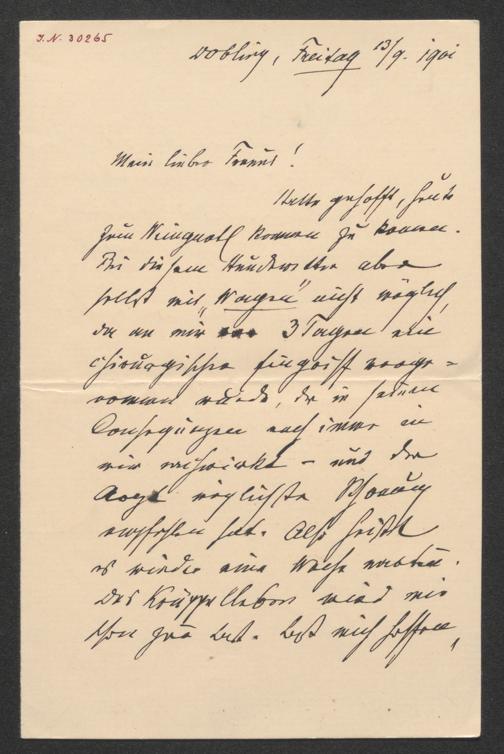 I.N. 30265
Döbling, Freitag 13/9. 1901
Mein lieber Freund!
Hatte gehofft, heute
zum kommen zu können.
Bei diesem Hundewetter aber
selbst mit "Wagen" nicht möglich,
da an mir 3 Tagen ein
chirurgischer Eingriff vorge-
nommen wurde, der in seinen
Consequenzen noch immer in
mir nachwirkt – und der
Arzt möglichste Schonung
empfohlen hat. Also heißt
es wieder eine Woche warten.
Das Krüppelleben wird mir
schon zur Last. Laß mich hoffen,